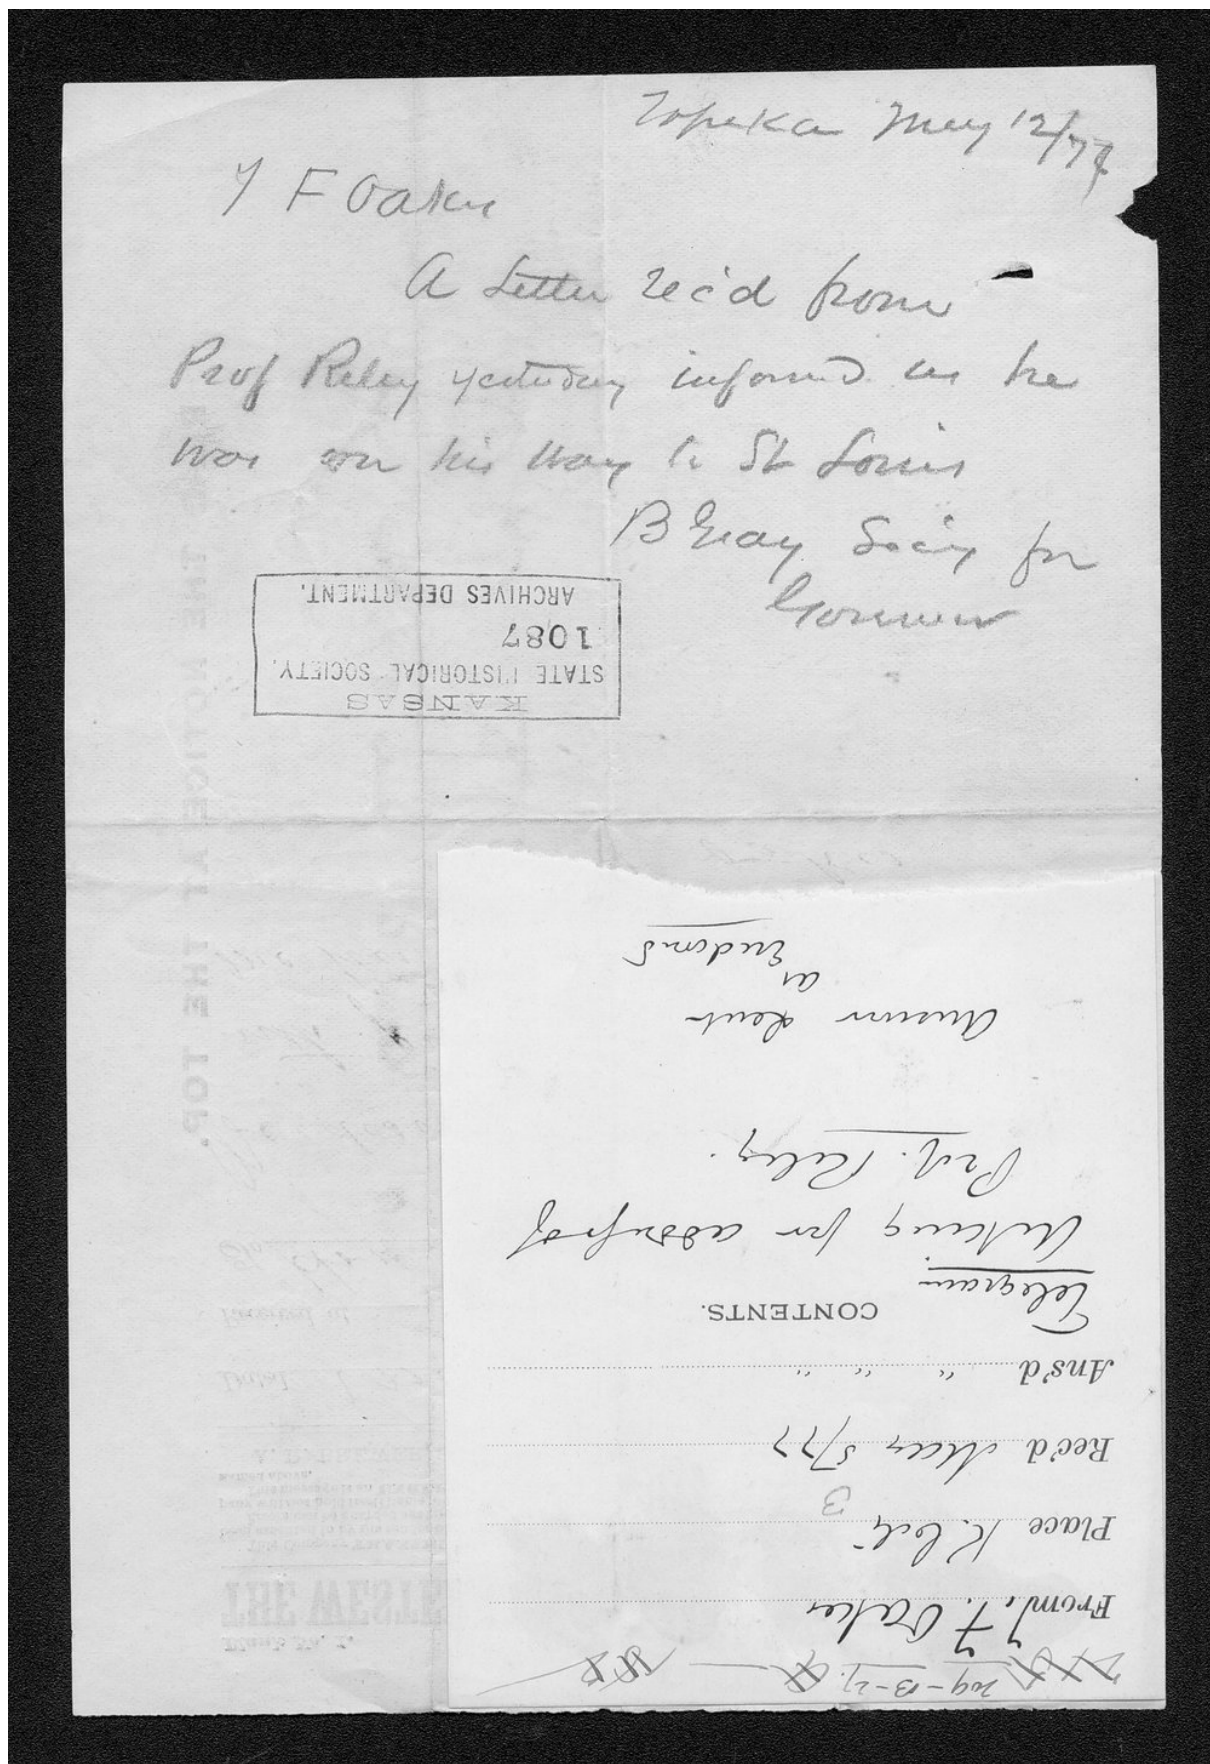 Topeka May 12/77
T F Oakes
A Letter rec'd from
Prof Riley yesterday informed us he
was on his way to St Louis
B Gray Sec'y for
Governor
KANSAS
STATE HISTORICAL SOCIETY.
1087
ARCHIVES DEPARTMENT.
From T. F. Oakes
Place K. City
3
Rec'd May 5/77
Ans'd " " "
CONTENTS.
Telegram
Asking for address of
Prof. Riley.
Answer Sent
as
Endorsed
THE NOTICE AT THE TOP.
THE WESTE
Blank No. 1.
Dated
Received at